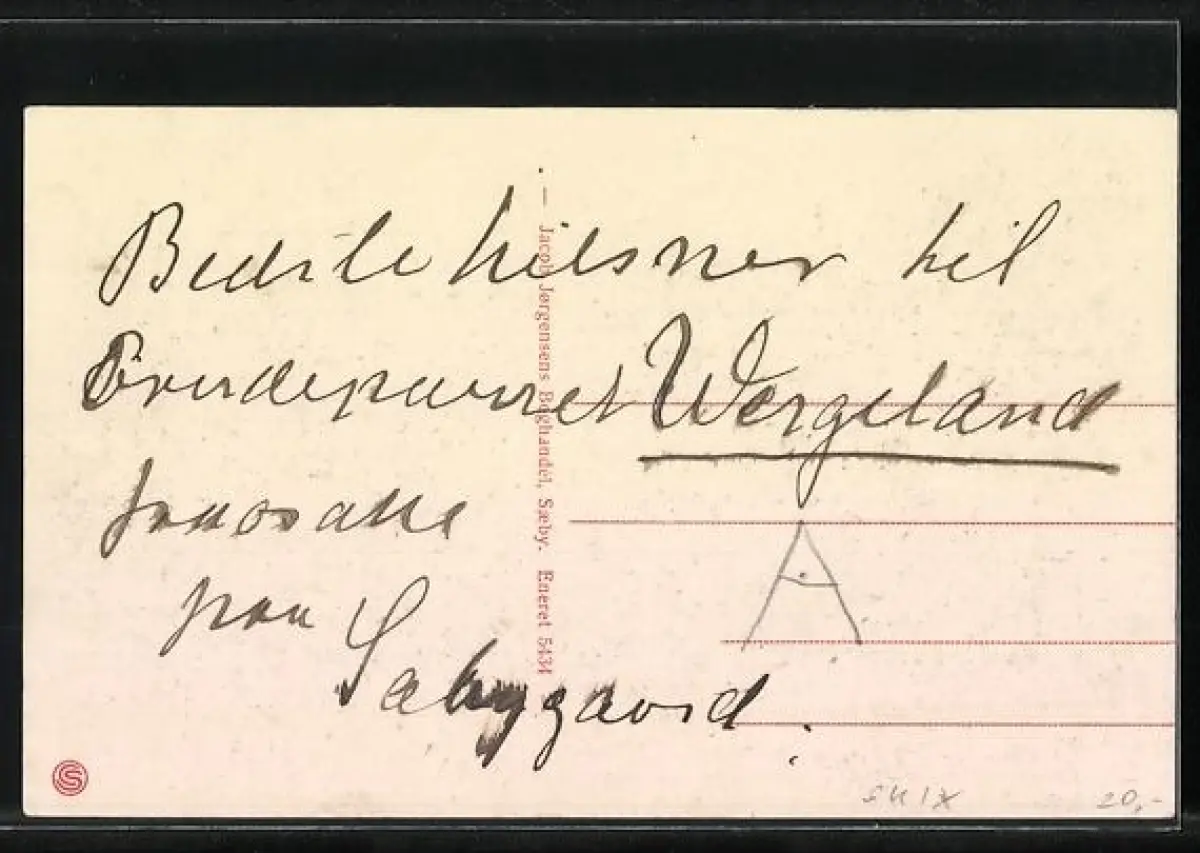 Bedste hilsner til
Brudeparret Wergeland
fra
paa
Sæbygaard.
— Jacob Jørgensens Boghandel, Sæby. Eneret 5434
A
S
20,-